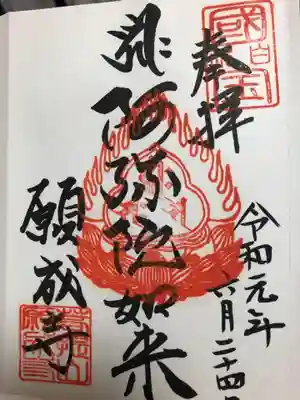 奉拝
令和元年
六月二十四日
阿弥陀如来
願成寺